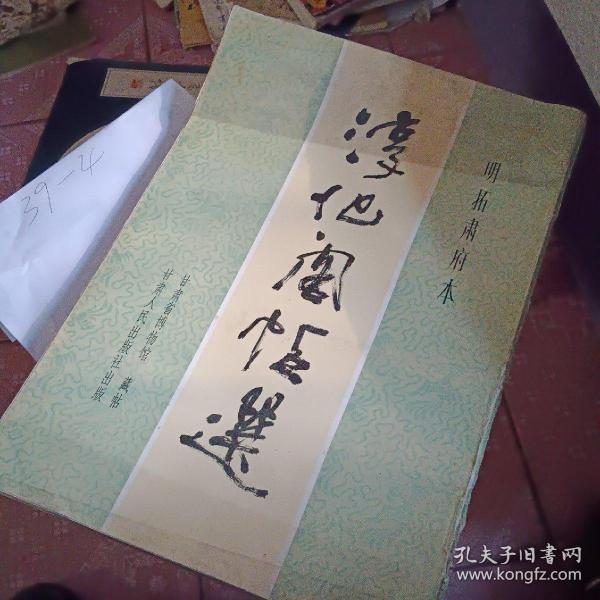 明拓肃府本
淳化阁帖選
甘肃省博物馆 藏帖
甘肃人民出版社出版
39-4
孔夫子旧书网
www.kongfz.com